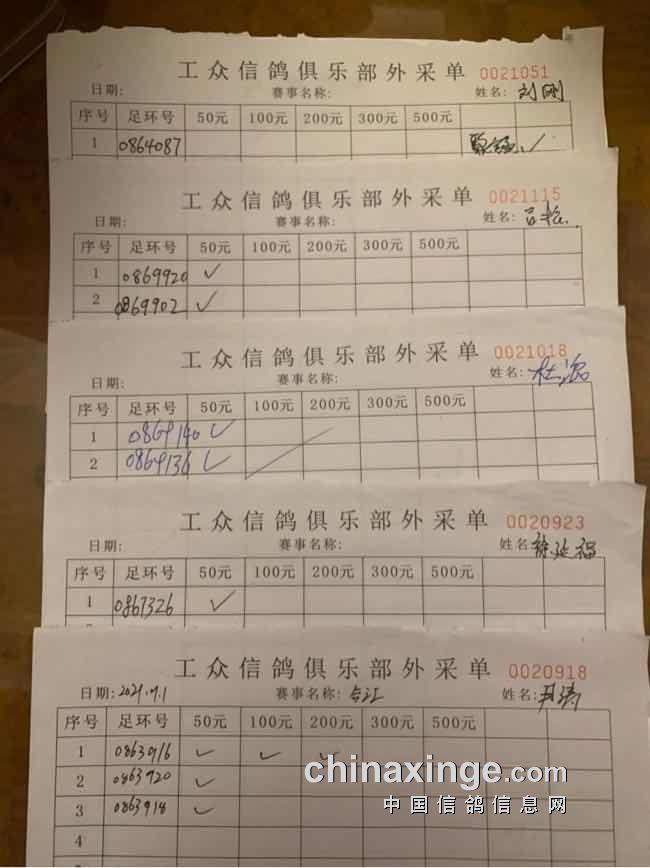 工众信鸽俱乐部外采单 0021051
日期: 赛事名称: 姓名: 刘刚
序号 足环号 50元 100元 200元 300元 500元
1 0864087 ✓
工众信鸽俱乐部外采单 0021115
日期: 赛事名称: 姓名:
序号 足环号 50元 100元 200元 300元 500元
1 0869920 ✓
2 0869902 ✓
工众信鸽俱乐部外采单 0021018
日期: 赛事名称: 姓名: 杜
序号 足环号 50元 100元 200元 300元 500元
1 0869140 ✓
2 0869136 ✓
工众信鸽俱乐部外采单 0020923
日期: 赛事名称: 姓名: 徐延福
序号 足环号 50元 100元 200元 300元 500元
1 0867326 ✓
工众信鸽俱乐部外采单 0020918
日期: 2021.7.1 赛事名称: 姓名:
序号 足环号 50元 100元 200元 300元 500元
1 0863916 ✓ ✓ ✓
2 0863920 ✓
3 0863918 ✓
4
chinaxinge.com
中国信鸽信息网